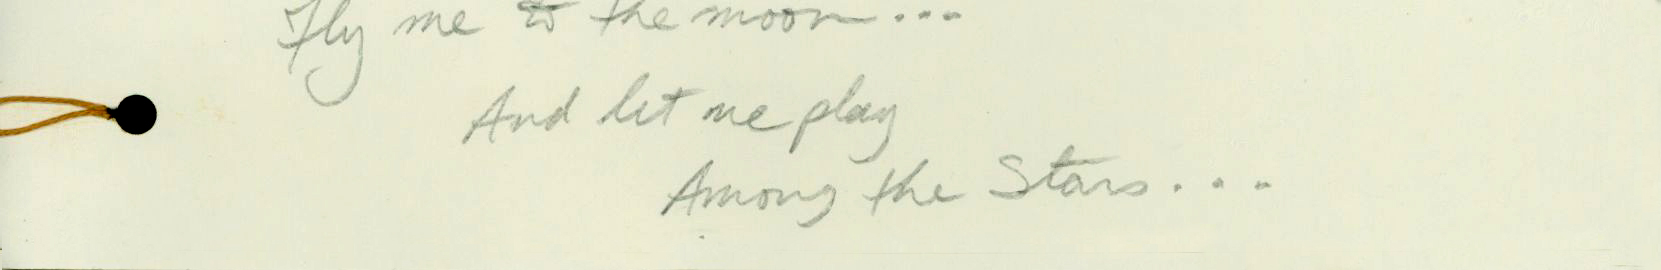 Fly me to the moon...
And let me play
Among the Stars....